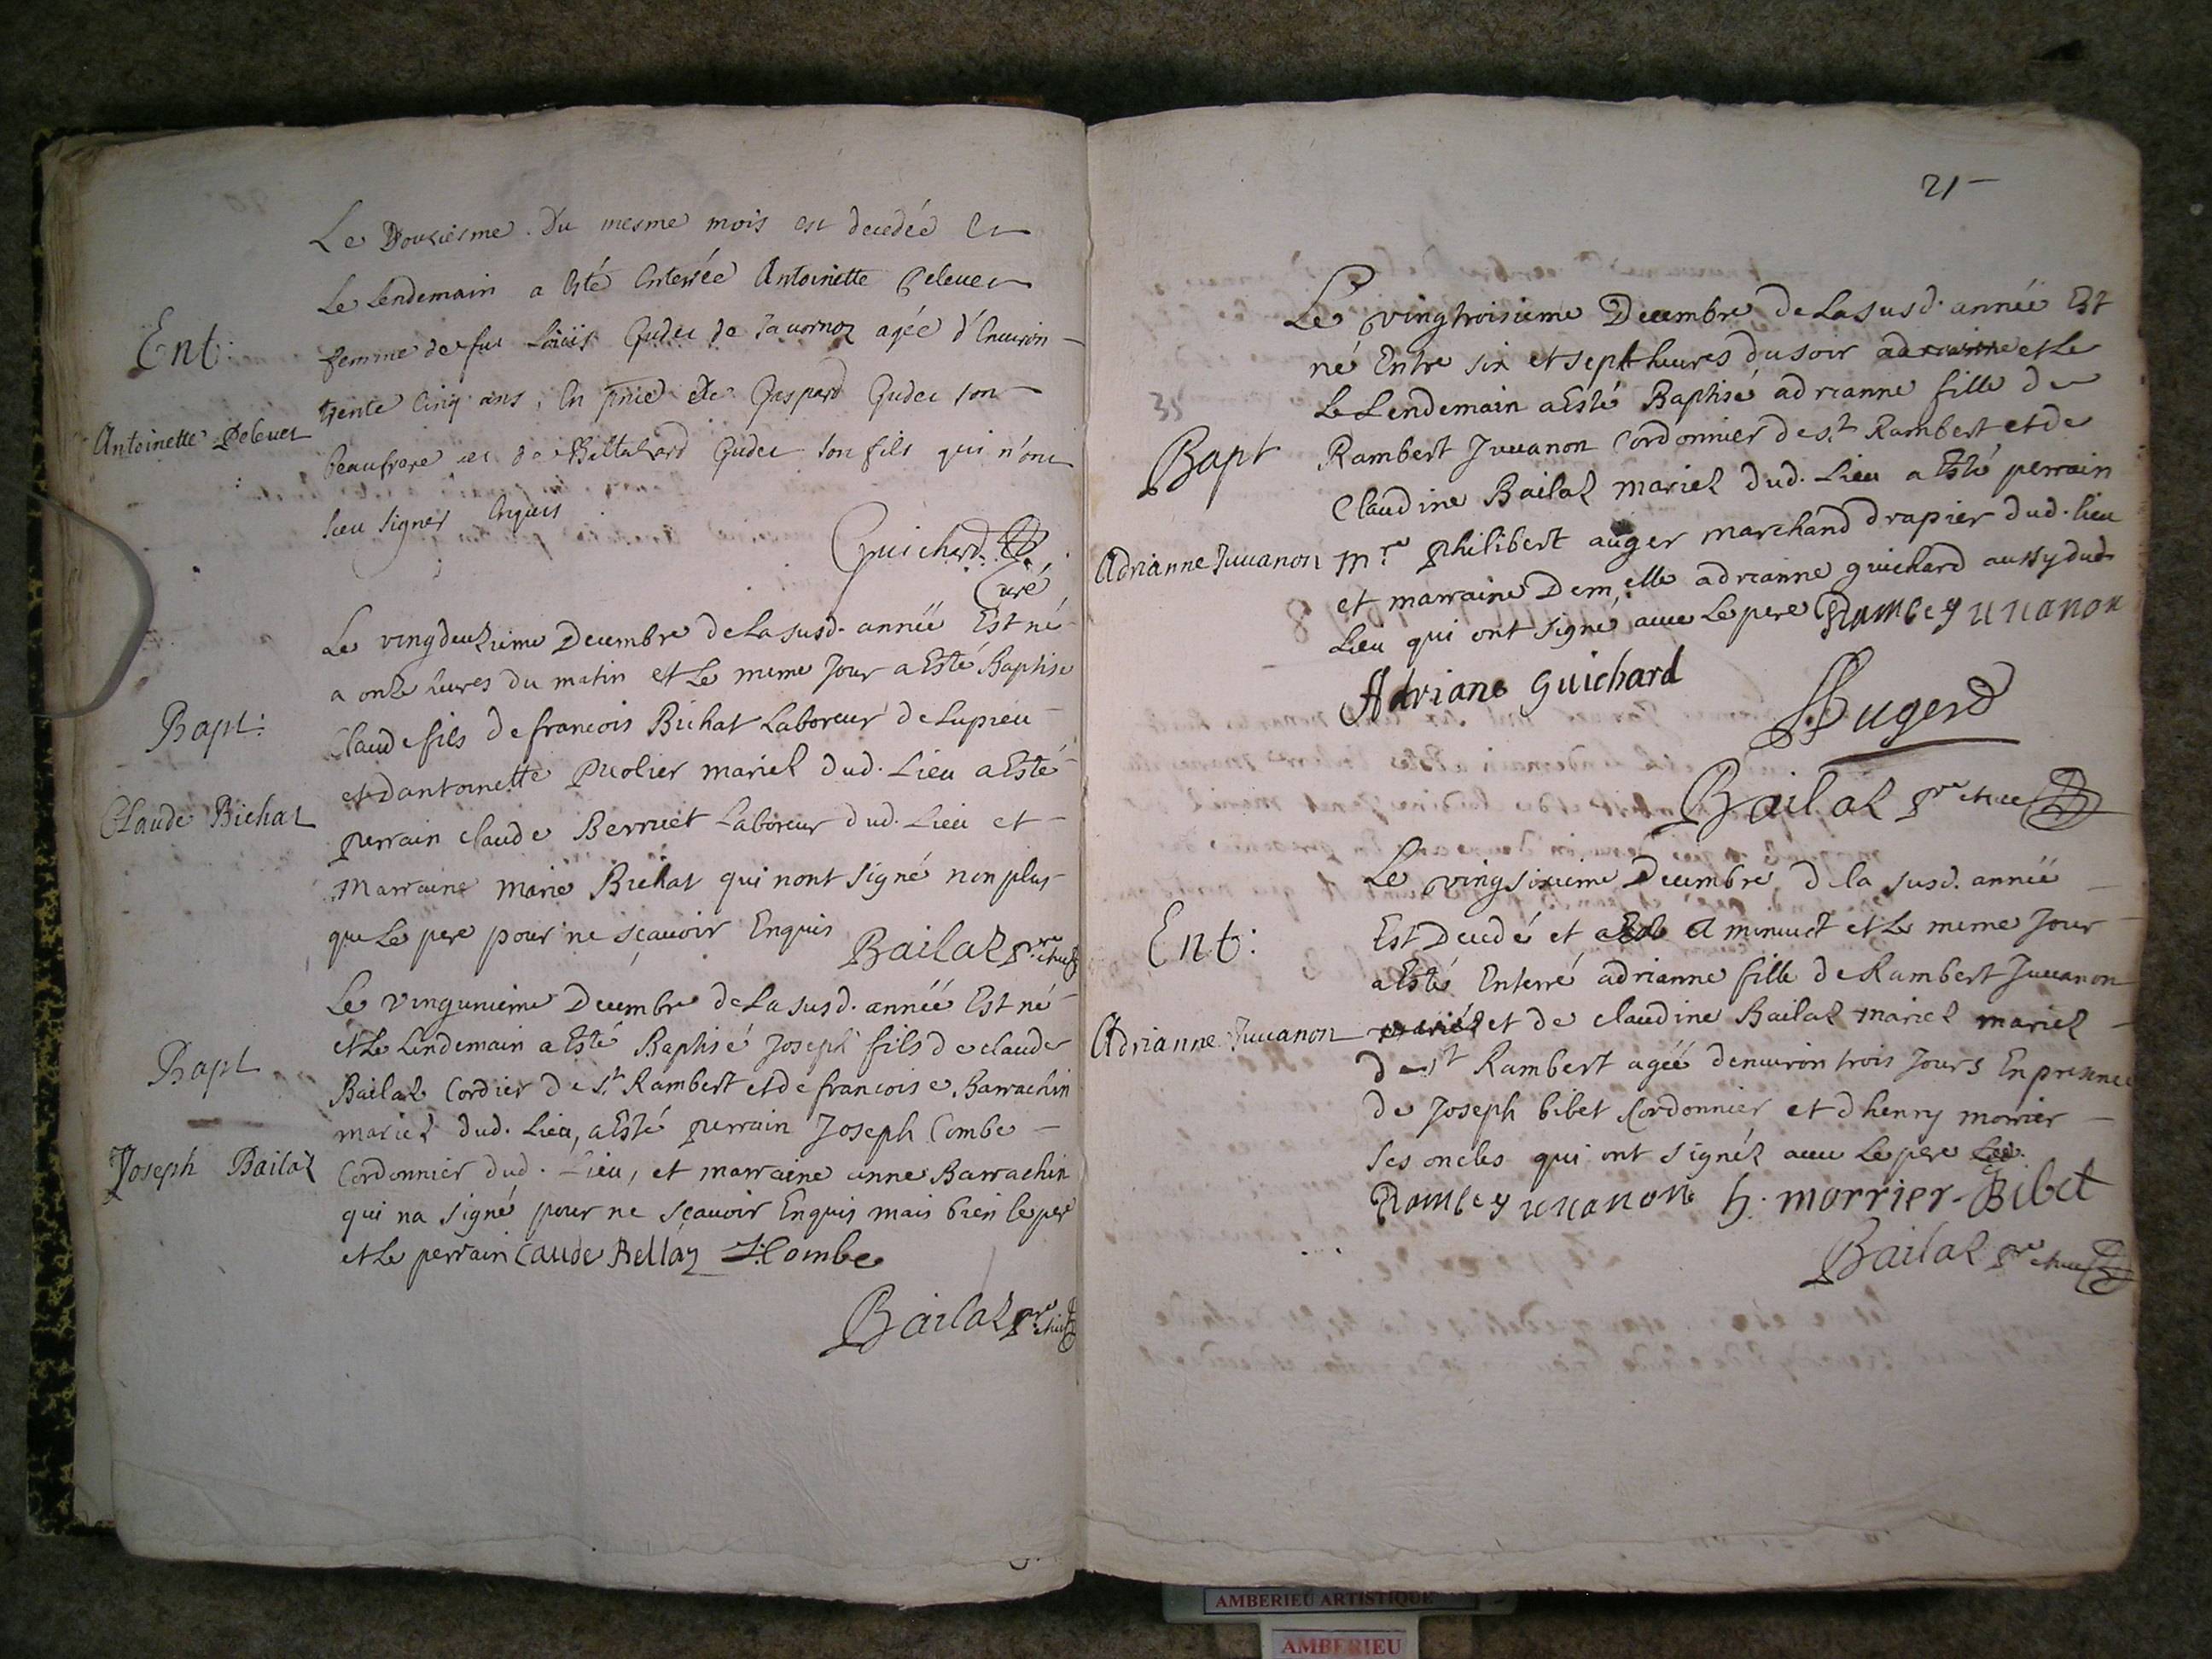 Le Douziesme. Du mesme mois est decedée et
Le Lendemain a esté enterrée Antoinette Peleuet
Ent:
femme de fut Loüis Gudet de Tauornoz agée d'enuiron
Antoinette Peleuet
trente cinq ans, en pnce de Gaspard Gudet son
beaufrere et de Baltazard Gudet son fils qui n'ont
sceu signer enquis
Guichard
Curé
Le vingdeuzieme Decembre de La susd. année Est né
a onze heures du matin et Le meme Jour a Esté Baptise
Bapt:
Claude fils de francois Bichat Laboreur de Lupieu
et dantoinette mariez dud. Lieu a Esté
Claude Bichat
perrain claude Berruet Laboreur dud. Lieu et
Marraine Marie Bichat qui nont signé non plus
que Le pere pour ne sçauoir Enquis
Bailaz pre
Le vingunieme Decembre de La susd. année Est né
et Le Lendemain a Esté Baptisé Joseph fils de claude
Bapt
Bailaz Cordier de St. Rambert et de francoise Barrachin
mariez dud. Lieu, a Esté perrain Joseph Combe
Joseph Bailaz
Cordonnier dud. Lieu, et marraine anne Barrachin
qui na signé pour ne sçauoir Enquis mais bien le pere
et Le perrain Caude Bellaz J. Combe
Bailaz pre
21
Le vingtroisieme Decembre de La susd. année Est
né Entre six et sept heures du soir adrianne et Le
35
Le Lendemain a Esté Baptisé adrianne fille de
Bapt
Rambert Juuanon Cordonnier de St. Rambert et de
Claudine Bailaz mariez dud. Lieu a Esté perrain
Adrianne Juuanon
mre. philibert auger marchand drapier dud. lieu
et marraine Dem.elle adrianne guichard aussy dud
Lieu qui ont signé auec Le pere Rambe Juuanon
Adriane Guichard
Augerd
Bailaz pre
Le vingsixieme Decembre de la susd. année
Ent:
Est Decedé et a minuict et Le meme Jour
a Esté Enterré adrianne fille de Rambert Juuanon
Adrianne Juuanon
mariéz et de claudine Bailaz mariez mariez
de St Rambert agéé denuiron trois Jours En presence
de Joseph bibet Cordonnier et dhenry morrier
ses oncles qui ont signéz auec Le pere
Rambe Juuanon h. morrier Bibet
Bailaz pre
AMBERIEU ARTISTIQUE
AMBERIEU